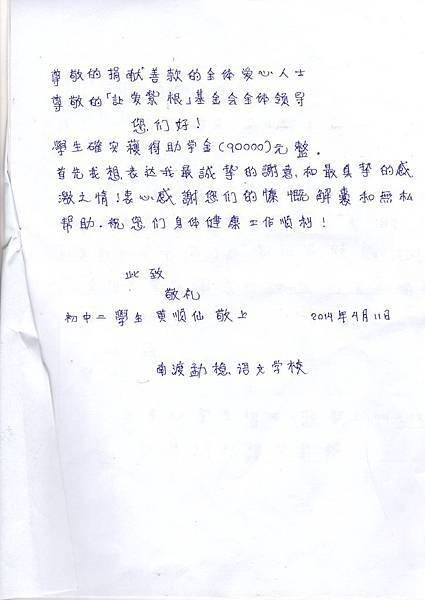 尊敬的捐献善款的全体爱心人士
尊敬的「让爱紮根」基金会全体领导
您们好！
學生確实獲得助学金(90000)元整.
首先我想表达我最誠挚的謝意,和最真挚的感
激之情!衷心感謝您们的慷慨解囊和無私
帮助.祝您们身体健康工作順利!
此致
敬礼
初中二學生 黄順仙 敬上 2014年4月11日
南渡勐穩语文学校